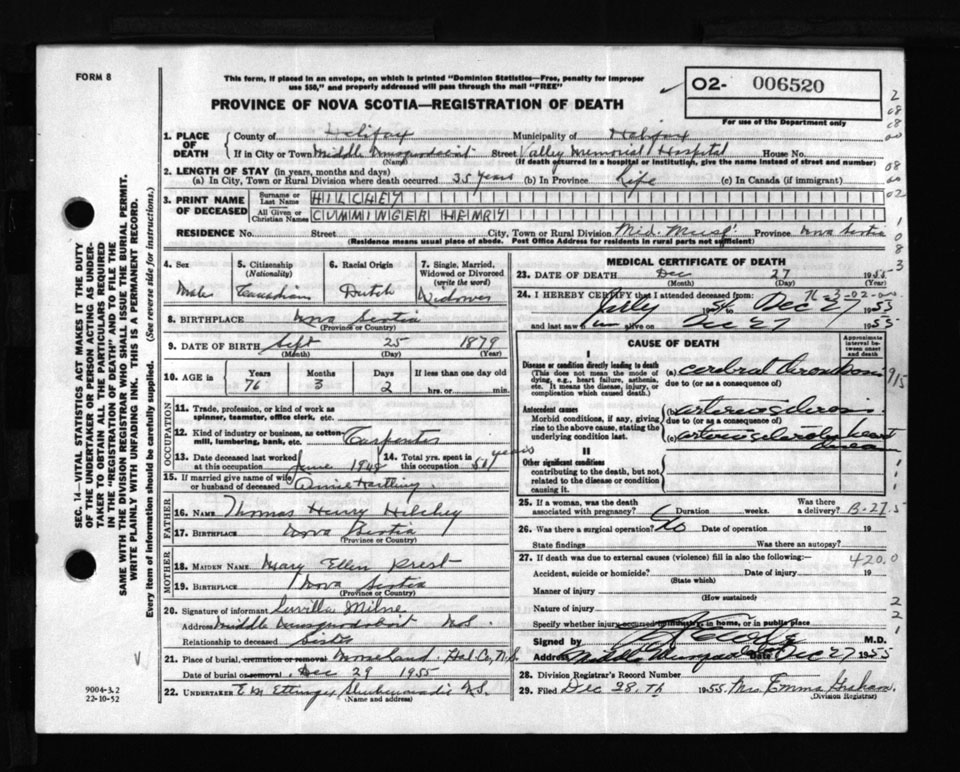 FORM 8
This form, if placed in an envelope, on which is printed "Dominion Statistics—Free, penalty for improper
use $50," and properly addressed will pass through the mail "FREE"
PROVINCE OF NOVA SCOTIA—REGISTRATION OF DEATH
O2- 006520
For use of the Department only
1. PLACE OF DEATH County of Halifax Municipality of Halifax
If in City or Town Middle Musquodoboit Street Valley Memorial Hospital House No.
(Name) (If death occurred in a hospital or institution, give the name instead of street and number)
2. LENGTH OF STAY (in years, months and days)
(a) In City, Town or Rural Division where death occurred 35 years (b) In Province Life (c) In Canada (if immigrant)
3. PRINT NAME OF DECEASED Surname or Last Name HILCHEY
All Given or Christian Names CUMMINGER HENRY
RESIDENCE No. Street City, Town or Rural Division Mid. Musq. Province Nova Scotia
(Residence means usual place of abode. Post Office Address for residents in rural parts not sufficient)
4. Sex Male
5. Citizenship (Nationality) Canadian
6. Racial Origin Dutch
7. Single, Married, Widowed or Divorced (write the word) Widower
8. BIRTHPLACE Nova Scotia
(Province or Country)
9. DATE OF BIRTH Sept 25 1879
(Month) (Day) (Year)
10. AGE is Years 76 Months 3 Days 2 If less than one day hrs. or min.
OCCUPATION
11. Trade, profession, or kind of work as spinner, teamster, office clerk, etc.
12. Kind of industry or business, as cotton-mill, lumbering, bank, etc. Carpenter
13. Date deceased last worked at this occupation June 1948
14. Total yrs. spent in this occupation 50 years
15. If married give name of wife or husband of deceased Annie Hartling
FATHER
16. NAME Thomas Henry Hilchey
17. BIRTHPLACE Nova Scotia
(Province or Country)
MOTHER
18. MAIDEN NAME Mary Ellen Prest
19. BIRTHPLACE Nova Scotia
(Province or Country)
20. Signature of informant Luvilla Milne
Address Middle Musquodoboit N.S.
Relationship to deceased Sister
21. Place of burial, cremation or removal Mooseland Hal. Co. N.S.
Date of burial or removal Dec 29 1955
22. UNDERTAKER E.M. Ettinger Shubenacadie N.S.
(Name and address)
MEDICAL CERTIFICATE OF DEATH
23. DATE OF DEATH Dec 27 1955
(Month) (Day)
24. I HEREBY CERTIFY that I attended deceased from
Dec 27 1953
and last saw him alive on Dec 27 1955
CAUSE OF DEATH
Approximate interval between onset and death
I
Disease or condition directly leading to death
(This does not mean the mode of dying, e.g., heart failure, asthenia, etc. It means the disease, injury, or complication which caused death.)
(a) cerebral thrombosis
due to (or as a consequence of)
Antecedent causes
Morbid conditions, if any, giving rise to the above cause, stating the underlying condition last.
(b) arteriosclerosis
due to (or as a consequence of)
(c) arteriosclerotic heart
II
Other significant conditions
contributing to the death, but not related to the disease or condition causing it.
25. If a woman, was the death associated with pregnancy? Duration weeks. Was there a delivery?
26. Was there a surgical operation? No Date of operation 19
State findings Was there an autopsy?
27. If death was due to external causes (violence) fill in also the following:—
420.0
Accident, suicide or homicide? Date of injury 19
(State which)
Manner of injury
(How sustained)
Nature of injury
Specify whether injury occurred in industry, in home, or in public place
Signed by M.D.
Address Middle Musquodoboit Date Dec 27 1955
28. Division Registrar's Record Number
29. Filed Dec 28th 1955 Mrs Emma Graham
(Division Registrar)
SEC. 14—VITAL STATISTICS ACT MAKES IT THE DUTY
OF THE UNDERTAKER OR PERSON ACTING AS UNDER-
TAKER TO OBTAIN ALL THE PARTICULARS REQUIRED
IN THE "REGISTRATION OF DEATH" AND TO FILE THE
SAME WITH THE DIVISION REGISTRAR WHO SHALL ISSUE THE BURIAL PERMIT.
WRITE PLAINLY WITH UNFADING INK. THIS IS A PERMANENT RECORD.
Every item of information should be carefully supplied. (See reverse side for instructions.)
9004-3.2
22-10-52